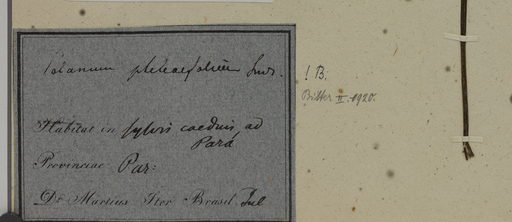 Solanum
Habitat in sylvis caeduis ad
Pará
Provinciae Par:
Dr Martius Iter Brasil. Jul
! B.
Bitter II. 1920.